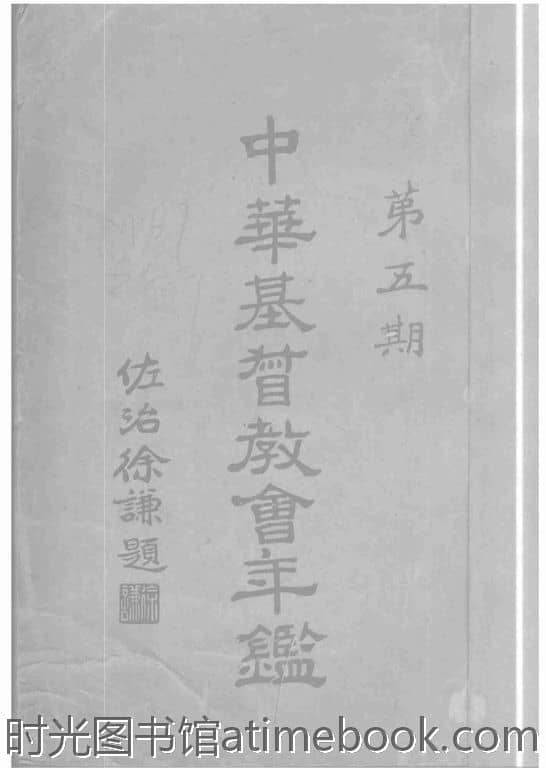 第五期
中華基督教會年鑑
佐治徐謙題
徐謙
时光图书馆atimebook.com